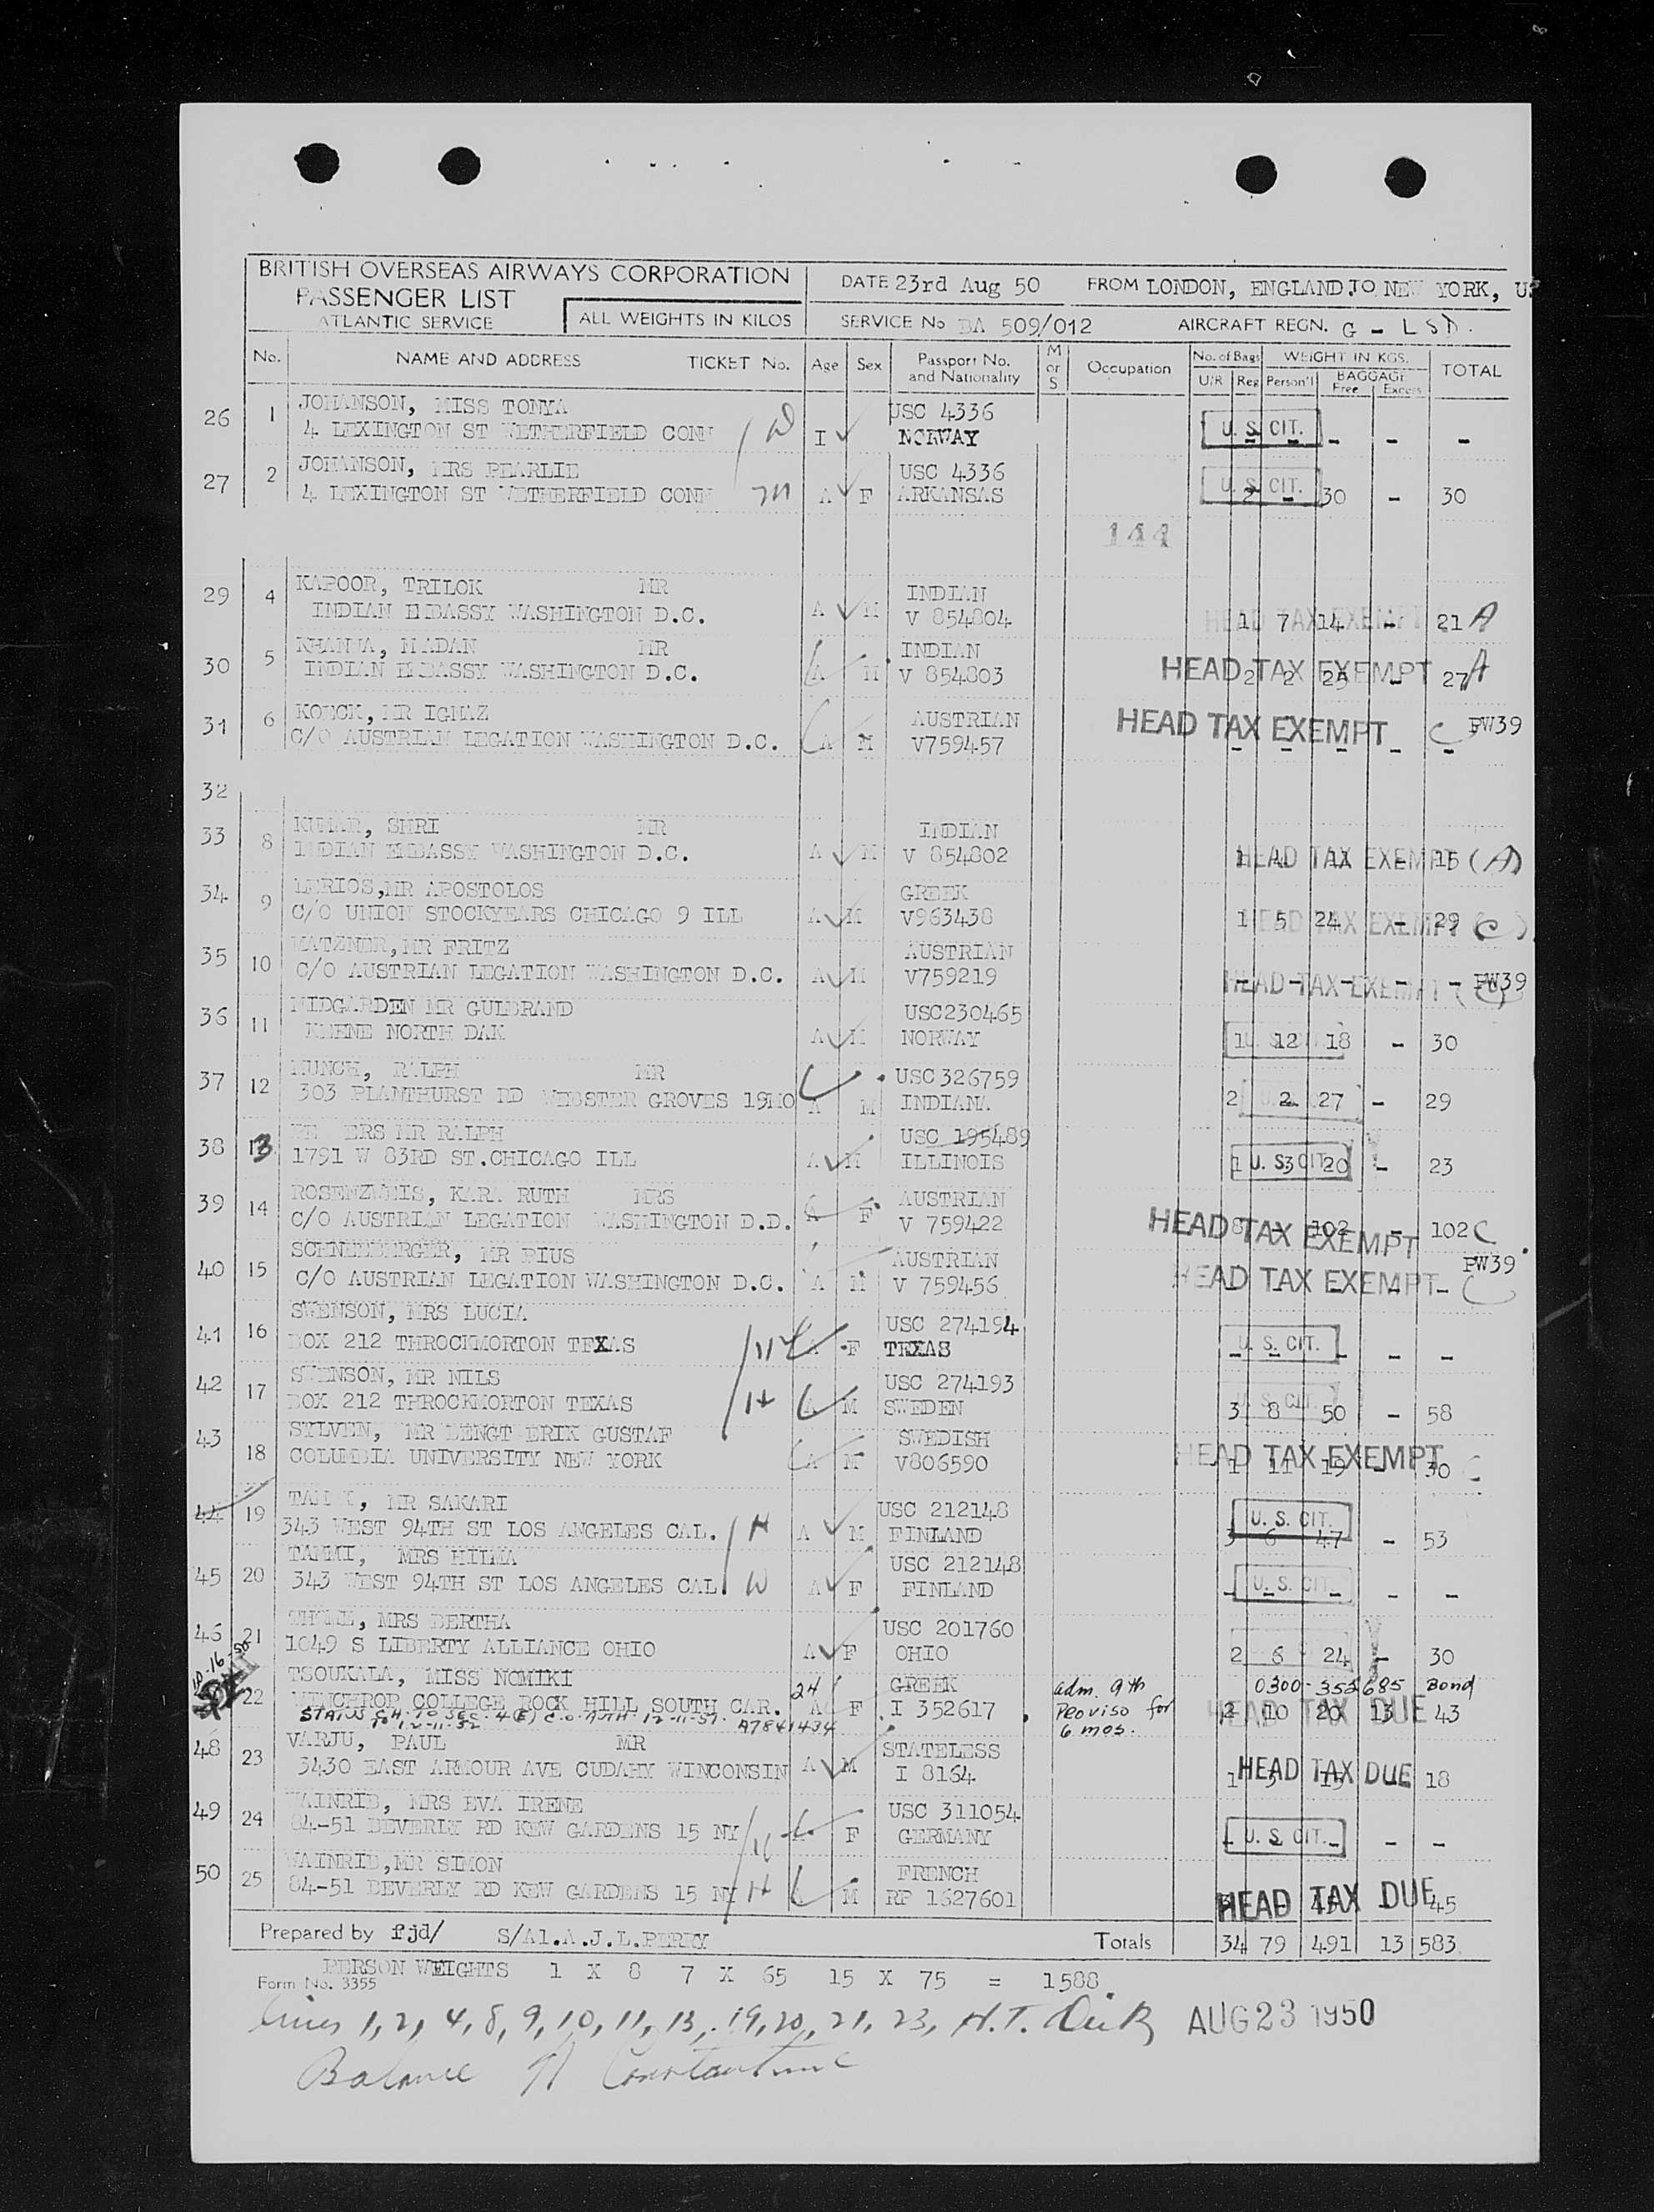 BRITISH OVERSEAS AIRWAYS CORPORATION
PASSENGER LIST
ATLANTIC SERVICE
ALL WEIGHTS IN KILOS
DATE 23rd Aug 50 FROM LONDON, ENGLAND TO NEW YORK, US
SERVICE No BA 509/012 AIRCRAFT REGN. G - LSD.
No. NAME AND ADDRESS TICKET No. Age Sex Passport No. and Nationality M or S Occupation No. of Bags U/R Reg WEIGHT IN KGS. Person'l BAGGAGE Free Excess TOTAL
26 1 JOHANSON, MISS TONYA USC 4336
4 LEXINGTON ST WETHERFIELD CONN I NORWAY U. S. CIT. - - -
27 2 JOHANSON, MRS PEARLIE USC 4336
4 LEXINGTON ST WETHERFIELD CONN A F ARKANSAS U. S. CIT. 2 - 30 - 30
144
29 4 KAPOOR, TRILOK MR INDIAN
INDIAN EMBASSY WASHINGTON D.C. A M V 854804 HEAD TAX EXEMPT 1 7 14 - 21 A
30 5 KHANNA, MADAN MR INDIAN
INDIAN EMBASSY WASHINGTON D.C. A M V 854803 HEAD TAX EXEMPT 2 2 25 - 27 A
31 6 KOECK, MR IGNAZ AUSTRIAN
C/O AUSTRIAN LEGATION WASHINGTON D.C. A M V759457 HEAD TAX EXEMPT - - - - - C PW39
32
33 8 KUMAR, SHRI MR INDIAN
INDIAN EMBASSY WASHINGTON D.C. A M V 854802 HEAD TAX EXEMPT 1 4 11 - 15 (A)
34 9 LERIOS,MR APOSTOLOS GREEK
C/O UNION STOCKYEARS CHICAGO 9 ILL A M V963438 HEAD TAX EXEMPT 1 5 24 - 29 (C)
35 10 MATZNER,MR FRITZ AUSTRIAN
C/O AUSTRIAN LEGATION WASHINGTON D.C. A M V759219 HEAD TAX EXEMPT - - - - - PW39
36 11 MIDGARDEN MR GULBRAND USC230465
KEENE NORTH DAK A M NORWAY 1 12 18 - 30
37 12 MUNCH, RALPH MR USC 326759
303 PLANTHURST RD WEBSTER GROVES 19MO A M INDIANA 2 2 27 - 29
38 13 ERS MR RALPH USC 195489
1791 W 83RD ST.CHICAGO ILL A M ILLINOIS U. S. CIT. 1 3 20 - 23
39 14 ROSENZWEIS, KARA RUTH MRS AUSTRIAN
C/O AUSTRIAN LEGATION WASHINGTON D.D. A F V 759422 HEAD TAX EXEMPT 8 - 102 - 102 C
40 15 SCHNEEBERGER, MR PIUS AUSTRIAN PW39
C/O AUSTRIAN LEGATION WASHINGTON D.C. A M V 759456 HEAD TAX EXEMPT - - - - - C
41 16 SWENSON, MRS LUCIA USC 274194
BOX 212 THROCKMORTON TEXAS A F TEXAS U. S. CIT. - - - - -
42 17 SWENSON, MR NILS USC 274193
BOX 212 THROCKMORTON TEXAS H A M SWEDEN U. S. CIT. 3 8 50 - 58
43 18 SYLVEN, MR BENGT ERIK GUSTAF SWEDISH
COLUMBIA UNIVERSITY NEW YORK A M V806590 HEAD TAX EXEMPT 1 11 19 - 30 C
44 19 TAMMI, MR SAKARI USC 212148
343 WEST 94TH ST LOS ANGELES CAL. H A M FINLAND U. S. CIT. 3 6 47 - 53
45 20 TAMMI, MRS HILMA USC 212148
343 WEST 94TH ST LOS ANGELES CAL W A F FINLAND U. S. CIT. - - - - -
46 21 THOME, MRS BERTHA USC 201760
1049 S LIBERTY ALLIANCE OHIO A F OHIO 2 6 24 - 30
22 TSOUKALA, MISS NOMIKI 24 GREEK adm. 9th 0300-352685 Bond
WINCHROP COLLEGE ROCK HILL SOUTH CAR. A F I 352617 Proviso for HEAD TAX DUE 2 10 20 13 43
STATUS CH. TO SEC. 4(E) C.O. AUTH. 12-11-51. A7841434 6 mos.
TO 12-11-52
48 23 VARJU, PAUL MR STATELESS
3430 EAST ARMOUR AVE CUDAHY WINCONSIN A M I 8164 HEAD TAX DUE 1 3 15 18
49 24 WAINRIB, MRS EVA IRENE USC 311054
84-51 BEVERLY RD KEW GARDENS 15 NY F GERMANY U. S. CIT. - - -
50 25 WAINRIB,MR SIMON FRENCH
84-51 BEVERLY RD KEW GARDENS 15 NY H A M RF 1627601 HEAD TAX DUE 45
Prepared by fjd/ S/A1.A.J.L.PERRY Totals 34 79 491 13 583
PERSON WEIGHTS 1 X 8 7 X 65 15 X 75 = 1588
Form No. 3355
Lines 1, 2, 4, 8, 9, 10, 11, 13, 19, 20, 21, 23, H.T. AUG 23 1950
Balance